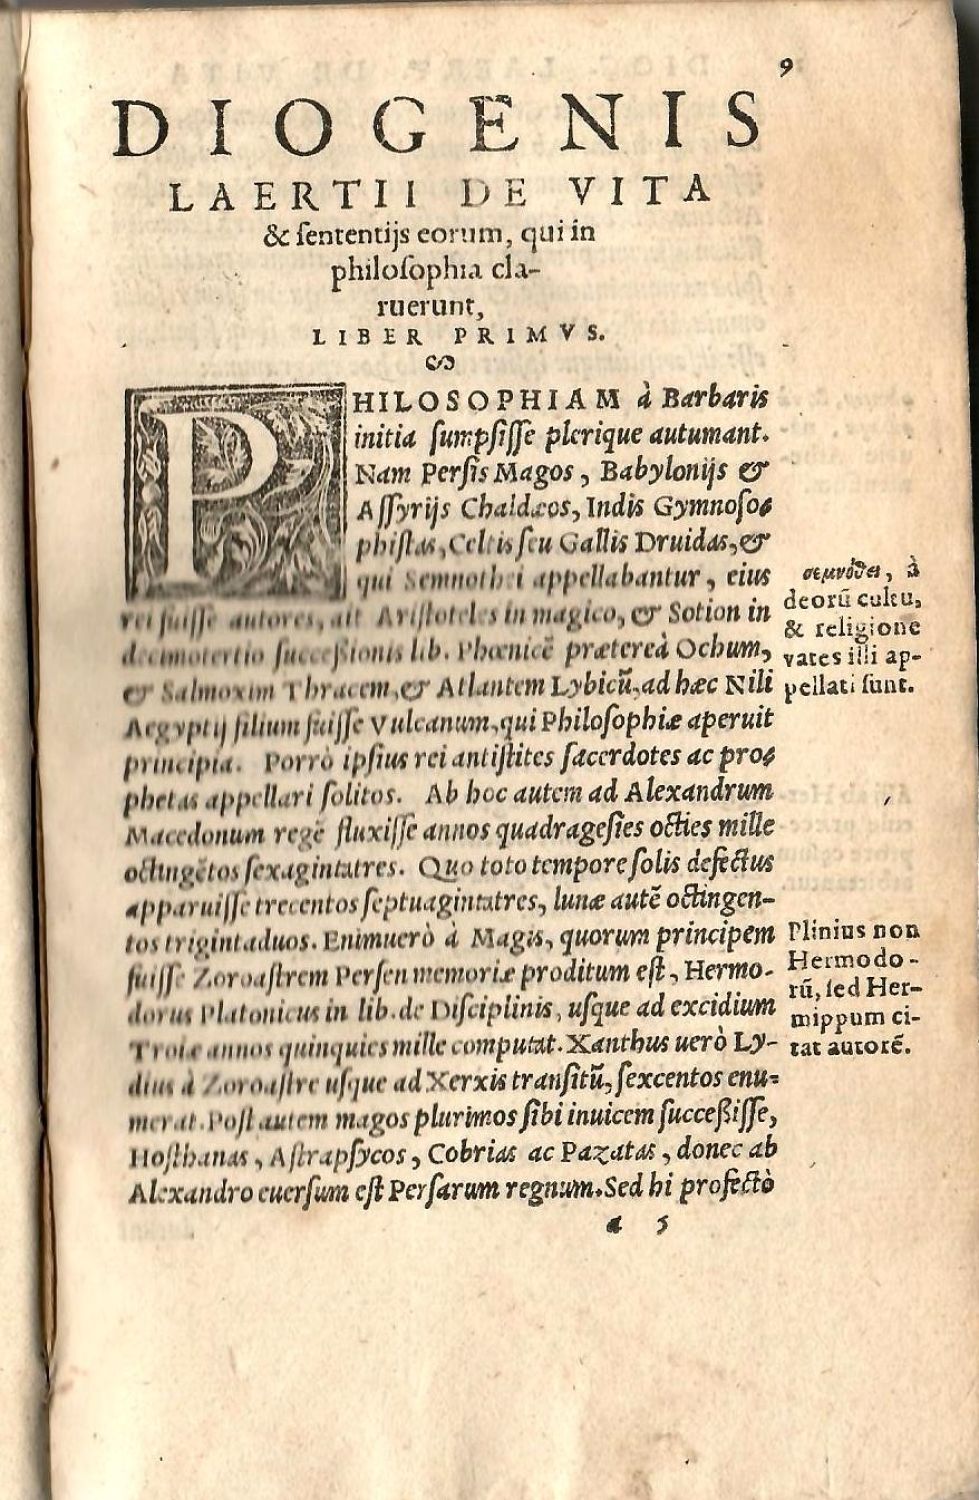 9
DIOGENIS
LAERTII DE VITA
& ſententijs eorum, qui in
philoſophia cla-
ruerunt,
LIBER PRIMVS.
PHILOSOPHIAM à Barbaris
initia ſumpſiſſe plerique autumant.
Nam Perſis Magos, Babylonijs &
Aſſyrijs Chaldæos, Indis Gymnoſo-
phiſtas, Celtis ſeu Gallis Druidas, &
qui Semnothei appellabantur, eius
rei fuiſſe autores, ait Ariſtoteles in magico, & Sotion in
decimotertio ſucceßionis lib. Phœnicẽ prætereà Ochum,
& Salmoxim Thracem, & Atlantem Lybicũ, ad hæc Nili
Aegyptij filium fuiſſe Vulcanum, qui Philoſophiæ aperuit
principia. Porrò ipſius rei antiſtites ſacerdotes ac pro-
phetas appellari ſolitos. Ab hoc autem ad Alexandrum
Macedonum regẽ fluxiſſe annos quadrageſies octies mille
octingẽtos ſexagintatres. Quo toto tempore ſolis defectus
apparuiſſe trecentos ſeptuagintatres, lunæ autẽ octingen-
tos trigintaduos. Enimuerò à Magis, quorum principem
fuiſſe Zoroaſtrem Perſen memoriæ proditum eſt, Hermo-
dorus Platonicus in lib. de Diſciplinis, uſque ad excidium
Troiæ annos quinquies mille computat. Xanthus uerò Ly-
dius à Zoroaſtre uſque ad Xerxis tranſitũ, ſexcentos enu-
merat. Poſt autem magos plurimos ſibi inuicem ſucceßiſſe,
Hoſthanas, Aſtrapſycos, Cobrias ac Pazatas, donec ab
Alexandro euerſum eſt Perſarum regnum. Sed hi profectò
a 5
σεμνόθεοι, à
deorũ cultu,
& religione
vates illi ap-
pellati ſunt.
Plinius non
Hermodo-
rũ, ſed Her-
mippum ci-
tat autorẽ.